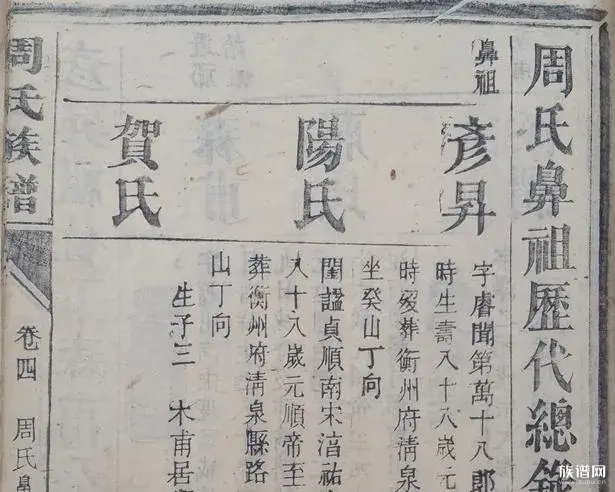 周氏鼻祖歷代總
鼻祖
彥昇
字睿聞第萬十八郎
時生壽八十八歲元
時歿葬衡州府清泉
坐癸山丁向
陽氏
閨謚貞順南宋淳祐
八十八歲元順帝至
葬衡州府清泉縣路
山丁向
賀氏
生子三 木甫居
周氏族譜
卷四 周氏鼻
族谱网
www.zupu.cn